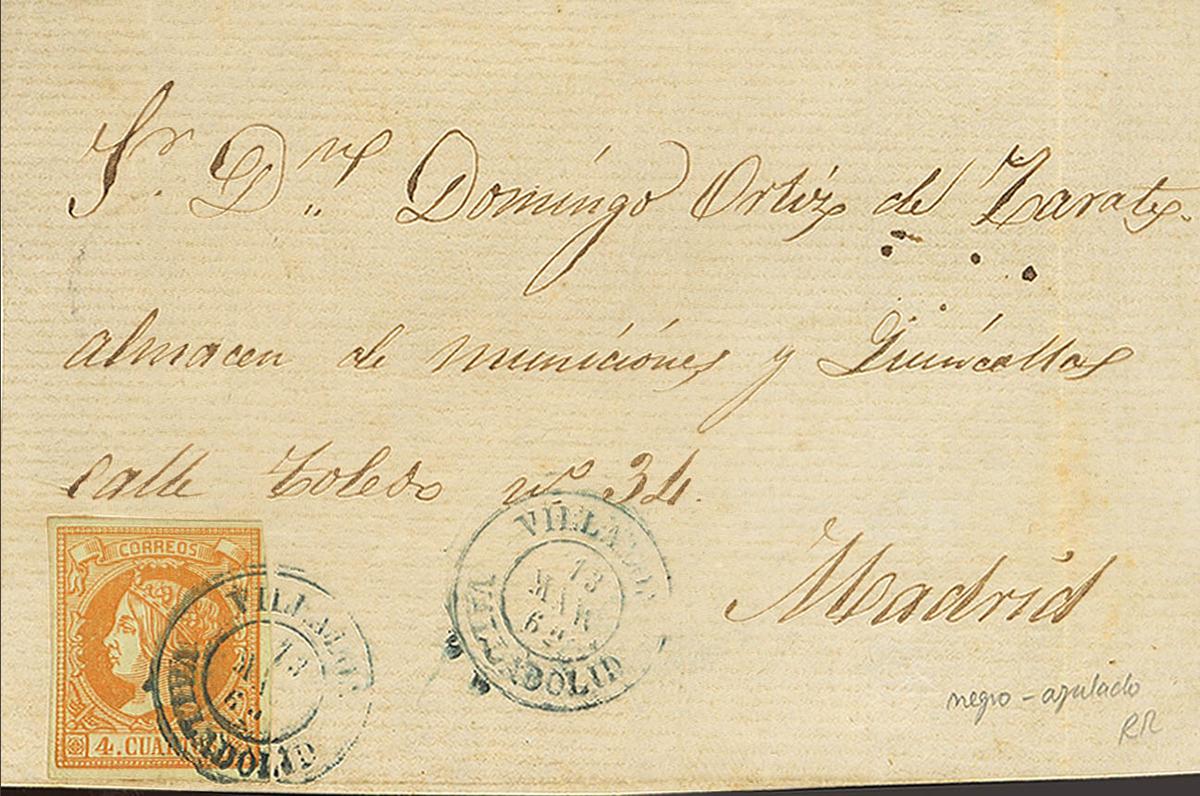 Sr. Dn. Domingo Ortiz de Zarate.
almacen de municiones y Quincallas
calle Toledo nº 34.
Madrid
CORREOS
4. CUAR
13
MAR
VALLADOLID
13
VALLADOLID
negro - azulado
RR